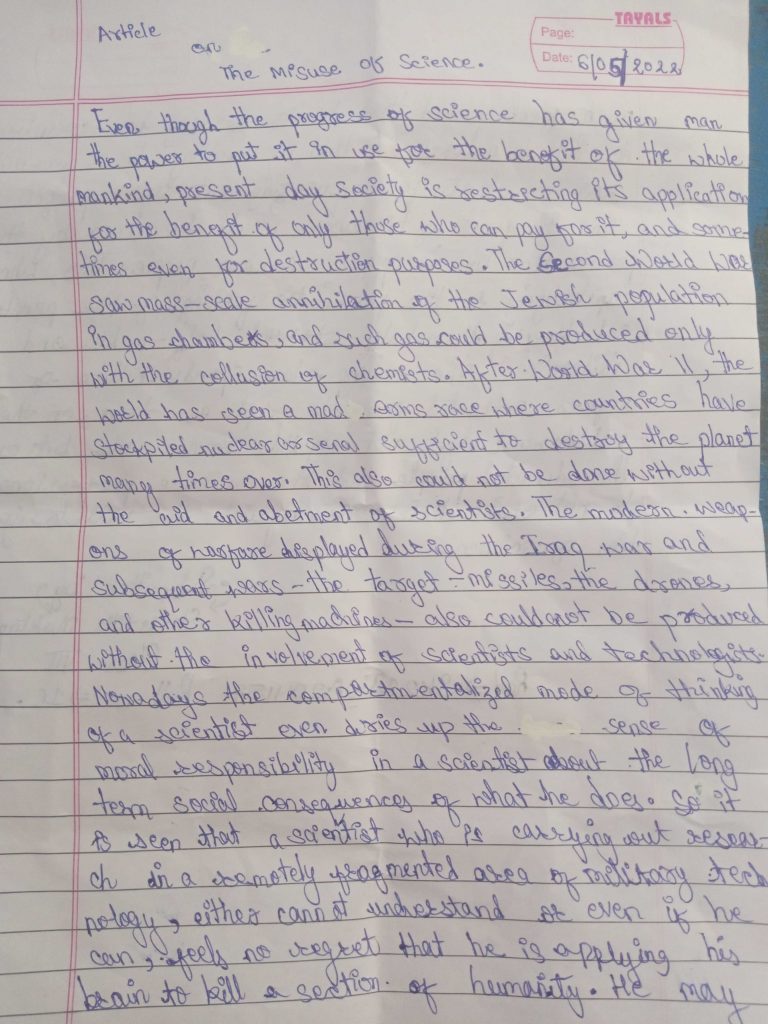 TAYALS
Page:
Date: 6/05/2022
Article
on
The Misuse of Science.
Even though the progress of science has given man
the power to put it in use for the benefit of the whole
mankind, present day society is restricting its application
for the benefit of only those who can pay for it, and some-
times even for destruction purposes. The Second World War
saw mass-scale annihilation of the Jewish population
in gas chambers, and such gas could be produced only
with the collusion of chemists. After World War II, the
world has seen a mad arms race where countries have
stockpiled nuclear arsenal sufficient to destroy the planet
many times over. This also could not be done without
the aid and abetment of scientists. The modern weap-
ons of warfare displayed during the Iraq war and
subsequent wars - the target - missiles, the drones,
and other killing machines - also could not be produced
without the involvement of scientists and technologists.
Nowadays the compartmentalized mode of thinking
of a scientist even dries up the sense of
moral responsibility in a scientist about the long
term social consequences of what he does. So it
is seen that a scientist who is carrying out resear-
ch in a remotely fragmented area of military tech
nology, either cannot understand or even if he
can, feels no regret that he is applying his
brain to kill a section of humanity. He may